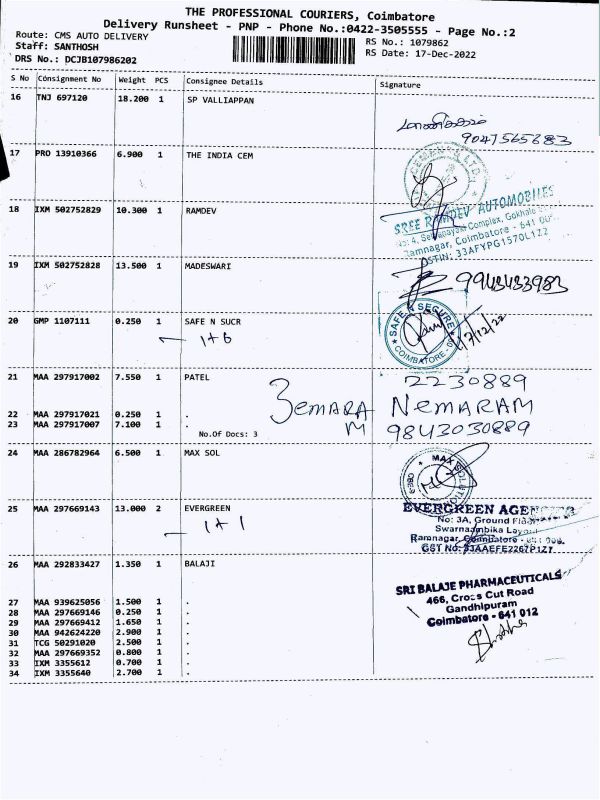 THE PROFESSIONAL COURIERS, Coimbatore
Delivery Runsheet - PNP - Phone No.:0422-3505555 - Page No.:2
Route: CMS AUTO DELIVERY
Staff: SANTHOSH
DRS No.: DCJB107986202
RS No.: 1079862
RS Date: 17-Dec-2022
S No Consignment No Weight PCS Consignee Details Signature
16 TNJ 697120 18.200 1 SP VALLIAPPAN
9047565683
17 PRO 13910366 6.900 1 THE INDIA CEM
18 IXM 502752829 10.300 1 RAMDEV
SREE RAMDEV AUTOMOBILES
No: 4, Complex, Gokhale
Ramnagar, Coimbatore - 641 00
GSTIN: 33AFYPG1570L1Z2
19 IXM 502752828 13.500 1 MADESWARI
9943433983
20 GMP 1107111 0.250 1 SAFE N SUCR
1+6
SAFE N SECURE
COIMBATORE
17/12/22
21 MAA 297917002 7.550 1 PATEL
2230889
22 MAA 297917021 0.250 1 .
23 MAA 297917007 7.100 1 .
No.Of Docs: 3
NEMARAM
9843030889
24 MAA 286782964 6.500 1 MAX SOL
MAX SOLUTIONS
25 MAA 297669143 13.000 2 EVERGREEN
1+1
EVERGREEN AGENCIES
No: 3A, Ground Floor
Swarnambika Layout
Ramnagar, Coimbatore - 641 009.
GST No: 33AAEFE2267P1Z1
26 MAA 292833427 1.350 1 BALAJI
SRI BALAJE PHARMACEUTICALS
466, Cross Cut Road
Gandhipuram
Coimbatore - 641 012
27 MAA 939625056 1.500 1 .
28 MAA 297669146 0.250 1 .
29 MAA 297669412 1.650 1 .
30 MAA 942624220 2.900 1 .
31 TCG 50291020 2.500 1 .
32 MAA 297669352 0.800 1 .
33 IXM 3355612 0.700 1 .
34 IXM 3355640 2.700 1 .